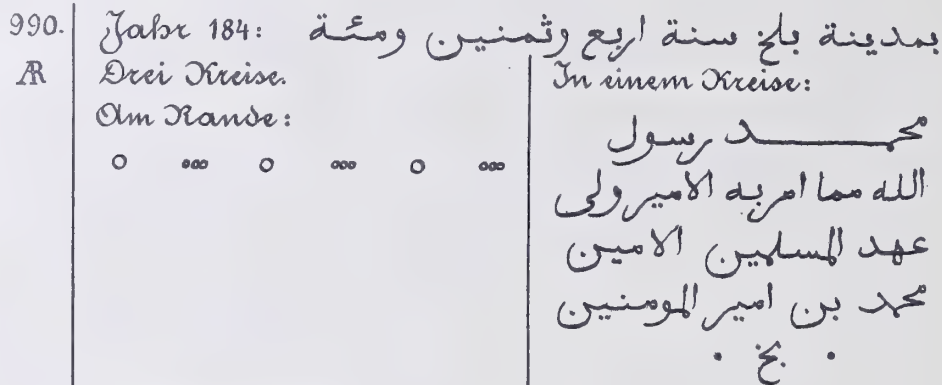 990. Jahr 184: بمدينة بلخ سنة اربع وثمنين ومئة
AR Drei Kreise. In einem Kreise:
Am Rande:
o ooo o ooo o ooo
محمد رسول
الله مما امر به الامير ولى
عهد المسلمين الامين
محمد بن امير المومنين
• بخ •